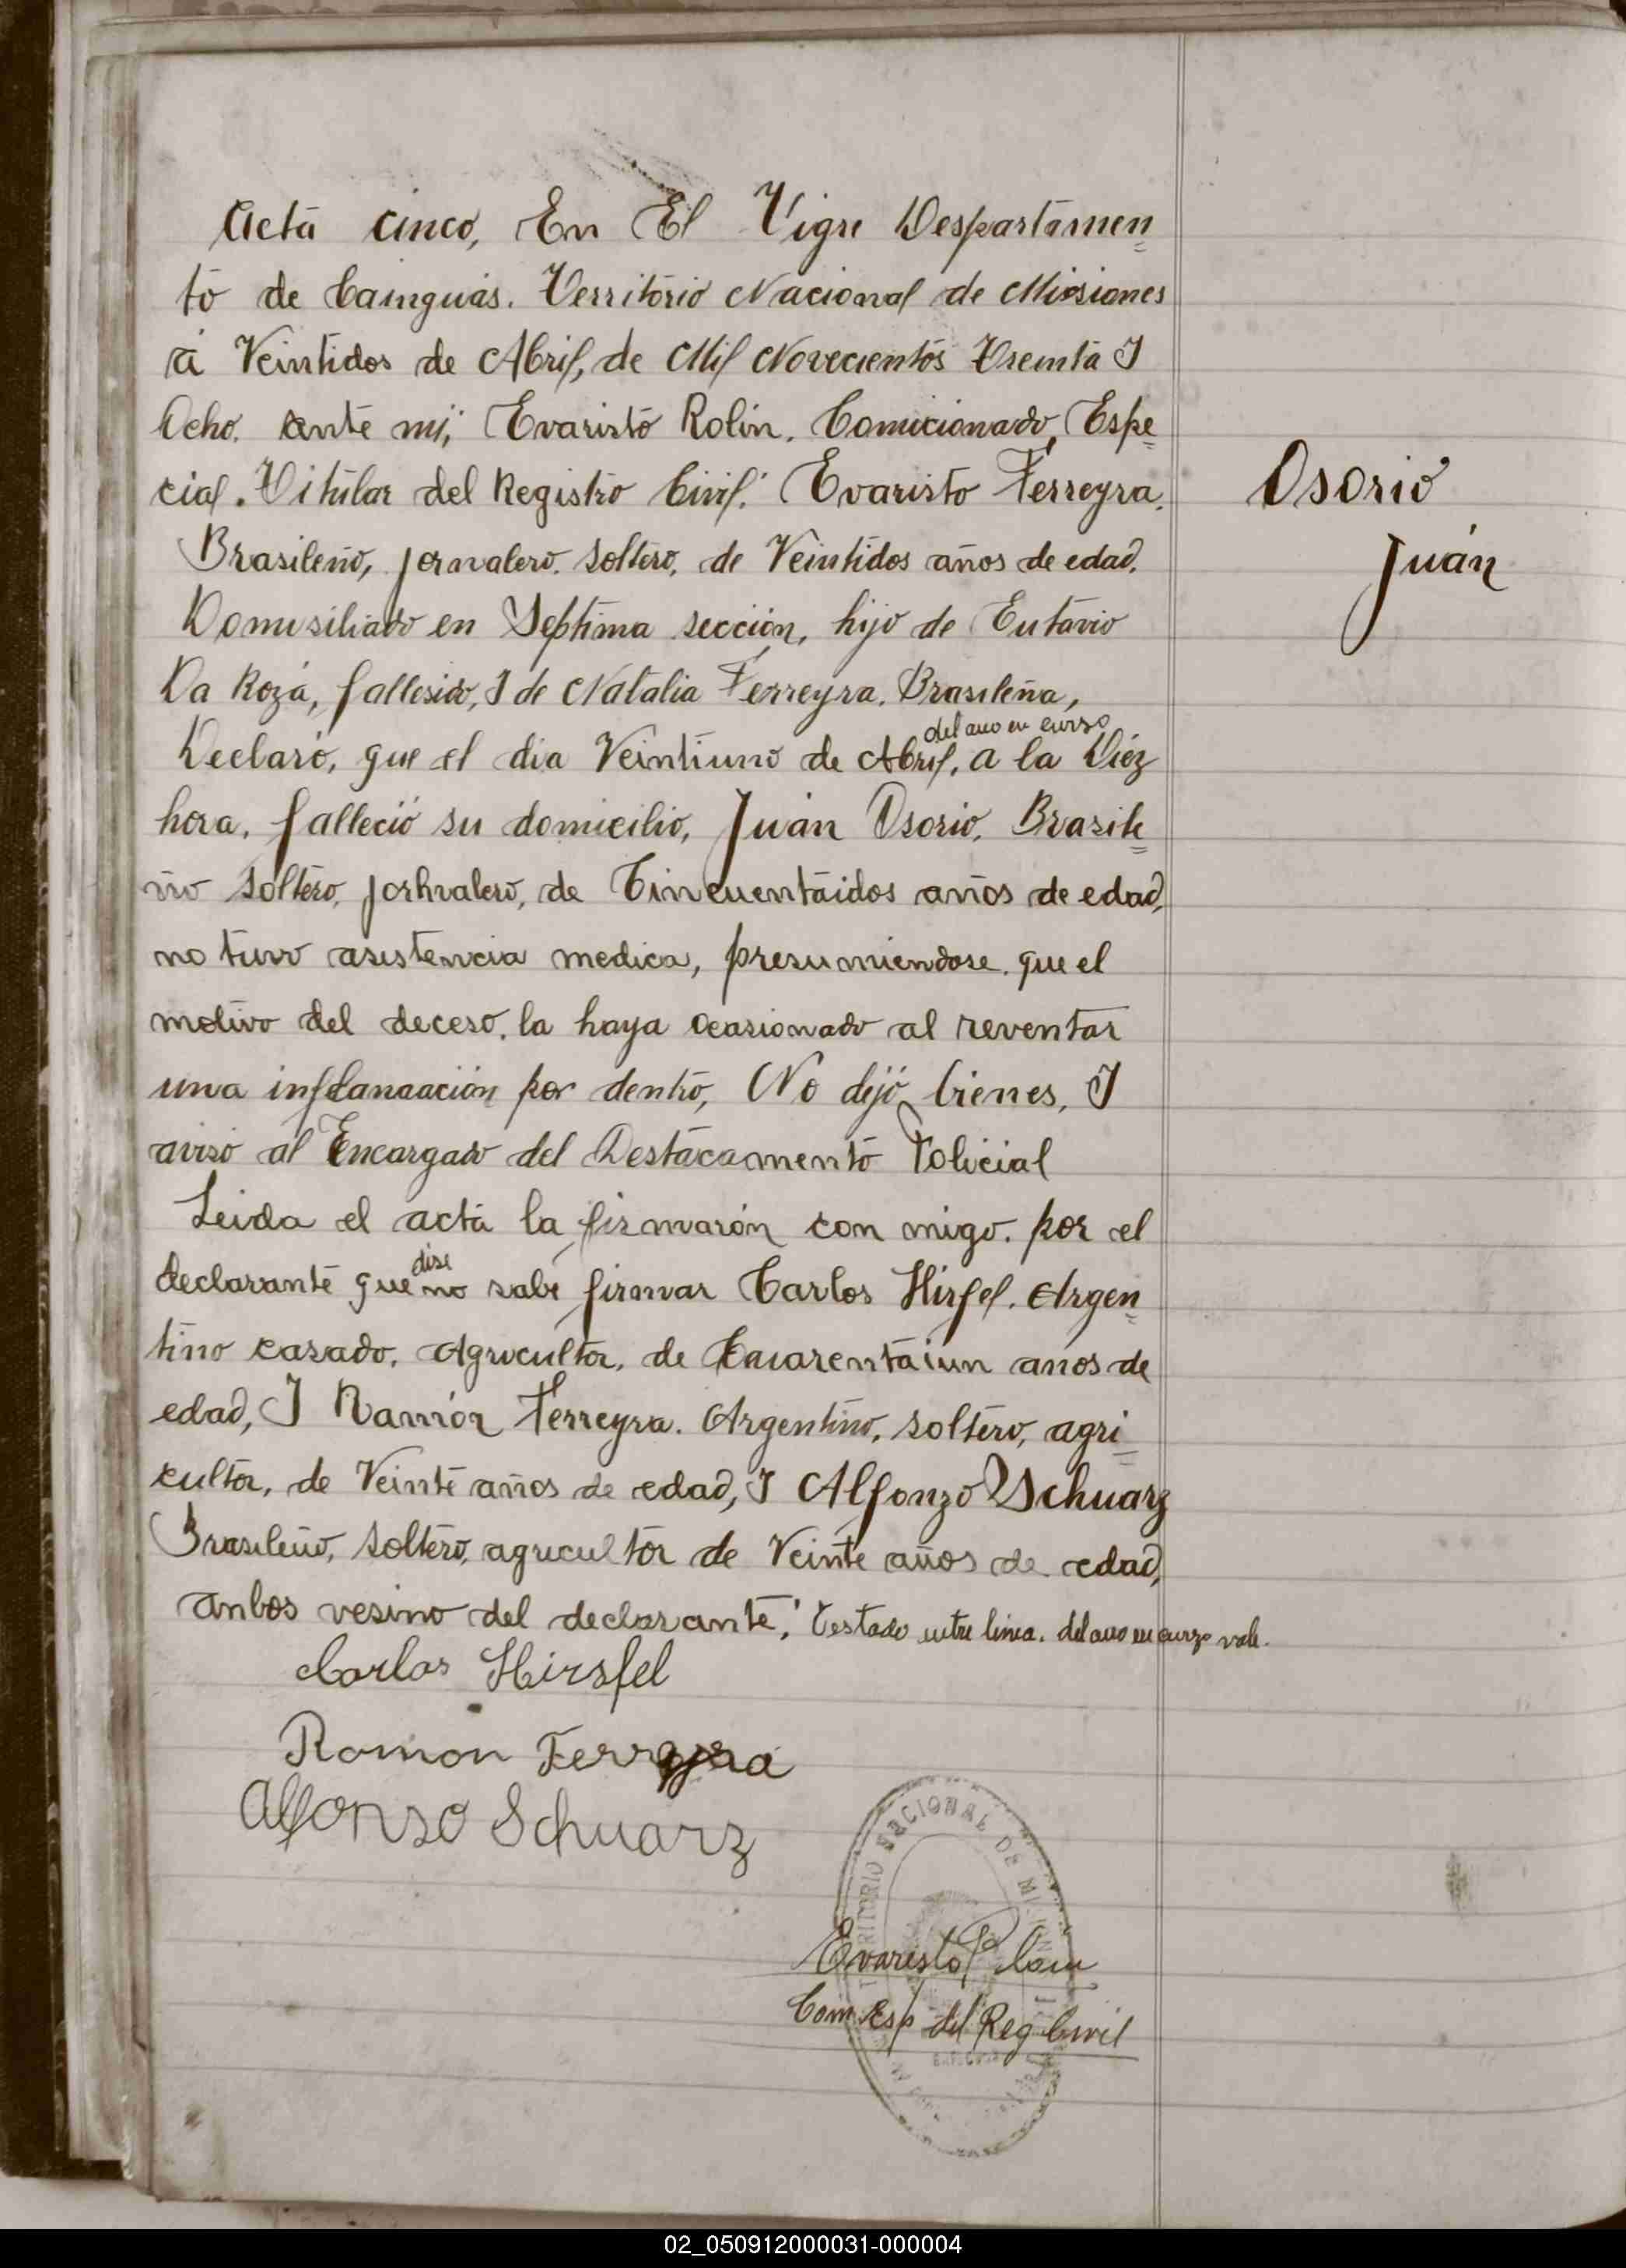 Acta cinco, En El Tigre Despartamen=
to de Cainguas. Territorio Nacional de Misiones
á Veintidos de Abril, de Mil Novecientos Treinta I
Ocho. ante mi, Evaristo Rolin. Comicionado, Espe=
cial. Titular del Registro Civil. Evaristo Ferreyra.
Brasileño, jornalero. soltero, de Veintidos años de edad.
Domisiliado en Septima sección, hijo de Eutavio
Da Roza, fallesido, I de Natalia Ferreyra. Brasileña,
del año en curso
Declaró, que el dia Veintiuno de Abril, a la Diéz
hora, falleció su domicilio, Juán Osorio, Brasile=
ño soltero, jorhnalero, de Cincuentaidos años de edad,
no tuvo asistencia medica, presumiendose que el
motivo del deceso. la haya ocasionado al reventar
una por dentro, No dejó bienes, I
aviso al Encargado del Destacamento Policial
Leida el acta la firmarón con migo. por el
dise
declarante que no sabe firmar Carlos Hirfel. Argen=
tino casado. Agricultor, de Cuarentaiun años de
edad, I Ramón Ferreyra. Argentino, soltero, agri=
cultor, de Veinte años de edad, I Alfonzo Schuarz
Brasileño, soltero, agricultor de Veinte años de edad,
anbos vesino del declarante, Testado entre linea. del año en curzo vale.
Osorio
Juán
Carlos Hirsfel
Ramon Ferreyra
Alfonso Schuarz
TERRITORIO NACIONAL DE MISIONES
Evaristo Rolin
Com Esp del Reg Civil
02_050912000031-000004